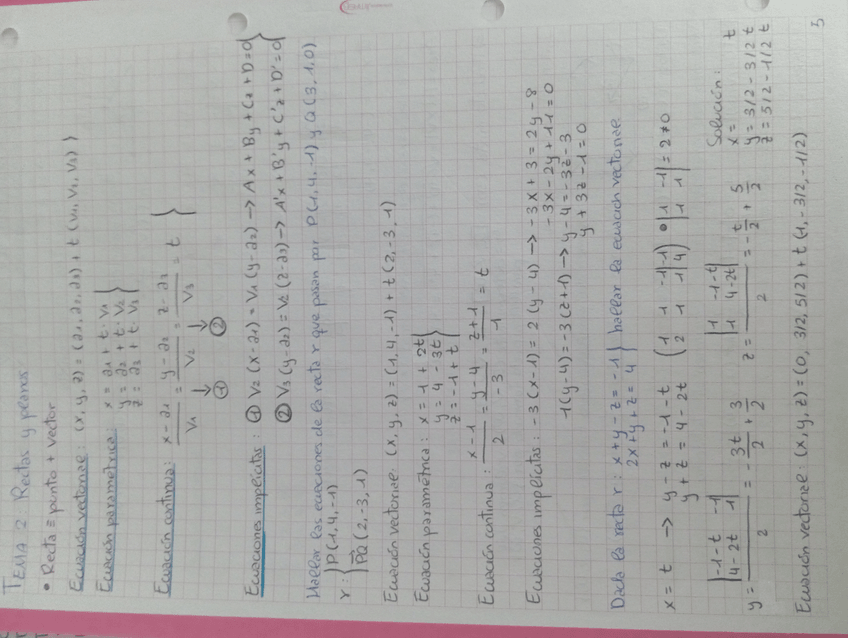 TEMA 2: Rectas y planos
• Recta ≡ punto + vector
Ecuación vectorial: (x, y, z) = (a1, a2, a3) + t (v1, v2, v3) }
Ecuación paramétrica: x = a1 + t · v1
y = a2 + t · v2
z = a3 + t v3
Ecuación continua: x - a1 / v1 = y - a2 / v2 = z - a3 / v3 = t }
① ②
Ecuaciones implícitas: ① v2 (x - a1) = v1 (y - a2) → Ax + By + Cz + D = 0
② v3 (y - a2) = v2 (z - a3) → A'x + B'y + C'z + D' = 0
Hallar las ecuaciones de la recta r que pasan por P(1, 4, -1) y Q(3, 1, 0)
r: { P(1, 4, -1)
PQ (2, -3, 1)
Ecuación vectorial: (x, y, z) = (1, 4, -1) + t (2, -3, 1)
Ecuación paramétrica: x = 1 + 2t
y = 4 - 3t
z = -1 + t
Ecuación continua: x - 1 / 2 = y - 4 / -3 = z + 1 / -1 = t
Ecuaciones implícitas: -3 (x - 1) = 2 (y - 4) → -3x + 3 = 2y - 8
-3x - 2y + 11 = 0
-1 (y - 4) = -3 (z + 1) → y - 4 = -3z - 3
y + 3z - 1 = 0
Dada la recta r: x + y - z = -1
2x + y + z = 4 } hallar la ecuación vectorial
x = t → y - z = -1 - t
y + z = 4 - 2t
(1 1 -1 | -1
2 1 1 | 4) • |1 -1
1 1| = 2 ≠ 0
y = |-1 - t -1
4 - 2t 1| / 2 = - 3t / 2 + 3 / 2
z = |1 -1 - t
1 4 - 2t| / 2 = - t / 2 + 5 / 2
Solución:
x = t
y = 3/2 - 3/2 t
z = 5/2 - 1/2 t
Ecuación vectorial: (x, y, z) = (0, 3/2, 5/2) + t (1, -3/2, -1/2)